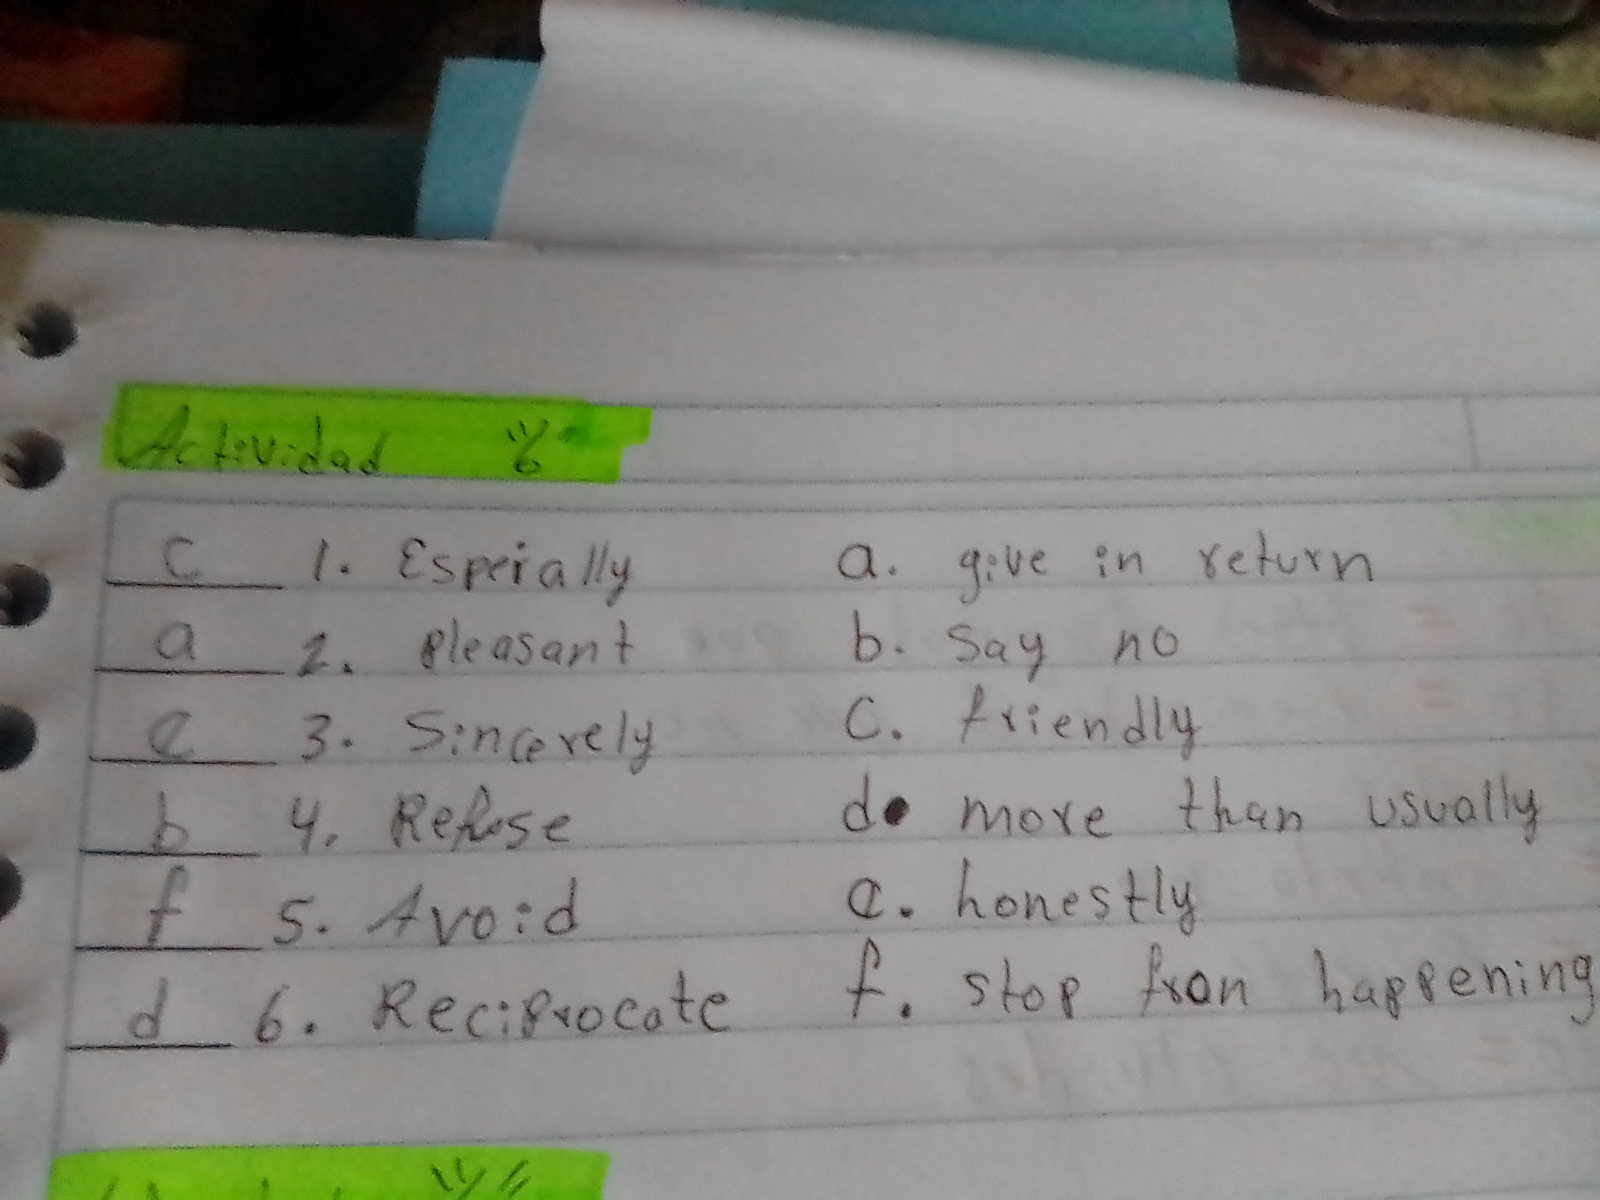 Actividad "6"
c 1. Espeially a. give in return
a 2. pleasant b. Say no
e 3. Sincerely C. friendly
b 4. Refuse d. more than usually
f 5. Avoid e. honestly
d 6. Reciprocate f. stop fron happening